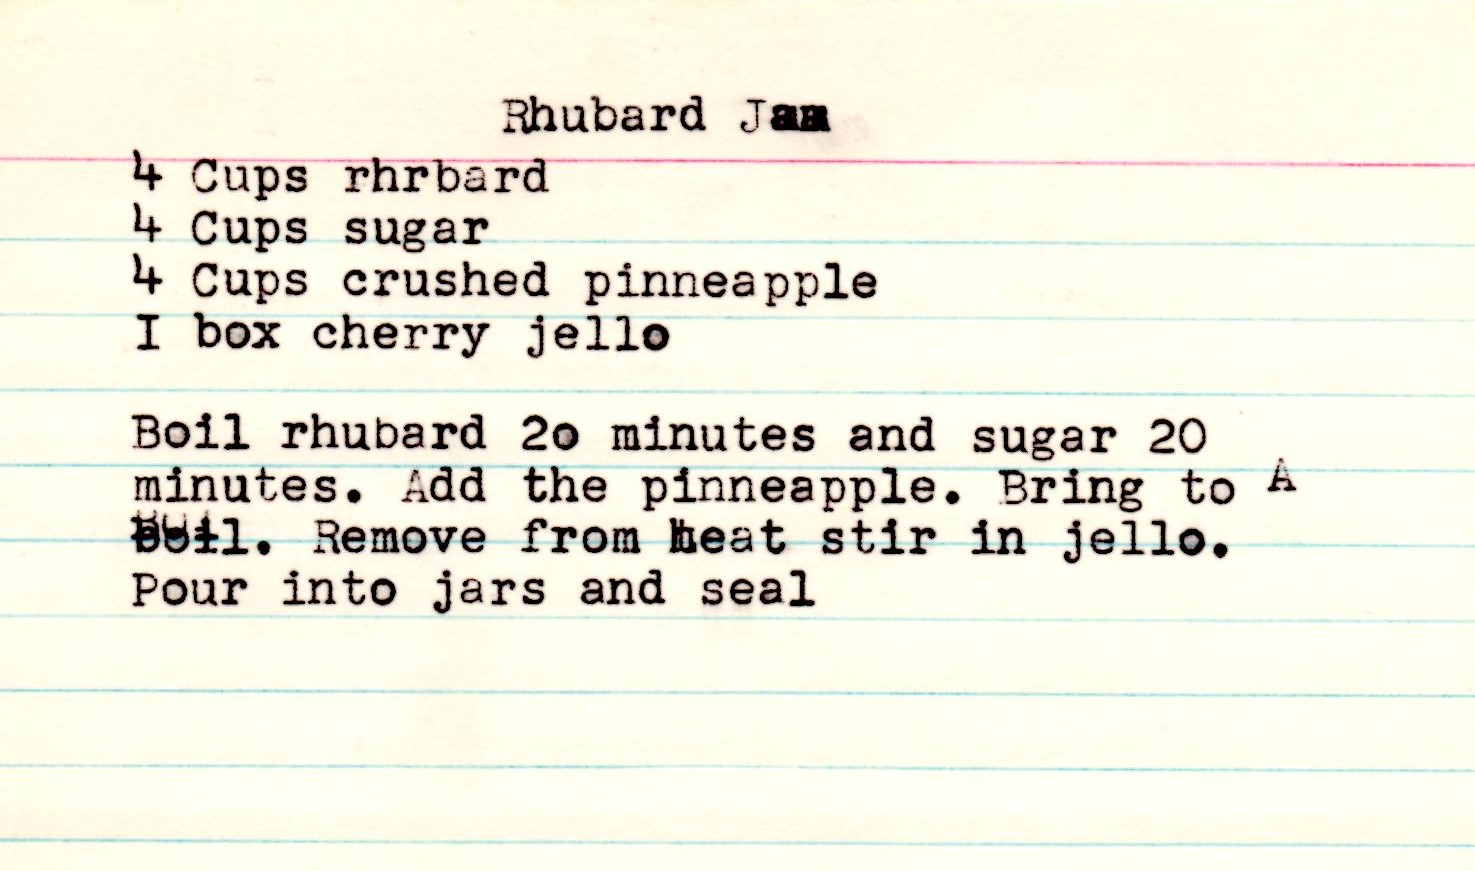 Rhubard Jam
4 Cups rhrbard
4 Cups sugar
4 Cups crushed pinneapple
I box cherry jello
Boil rhubard 2o minutes and sugar 20
minutes. Add the pinneapple. Bring to A
Boil. Remove from heat stir in jello.
Pour into jars and seal